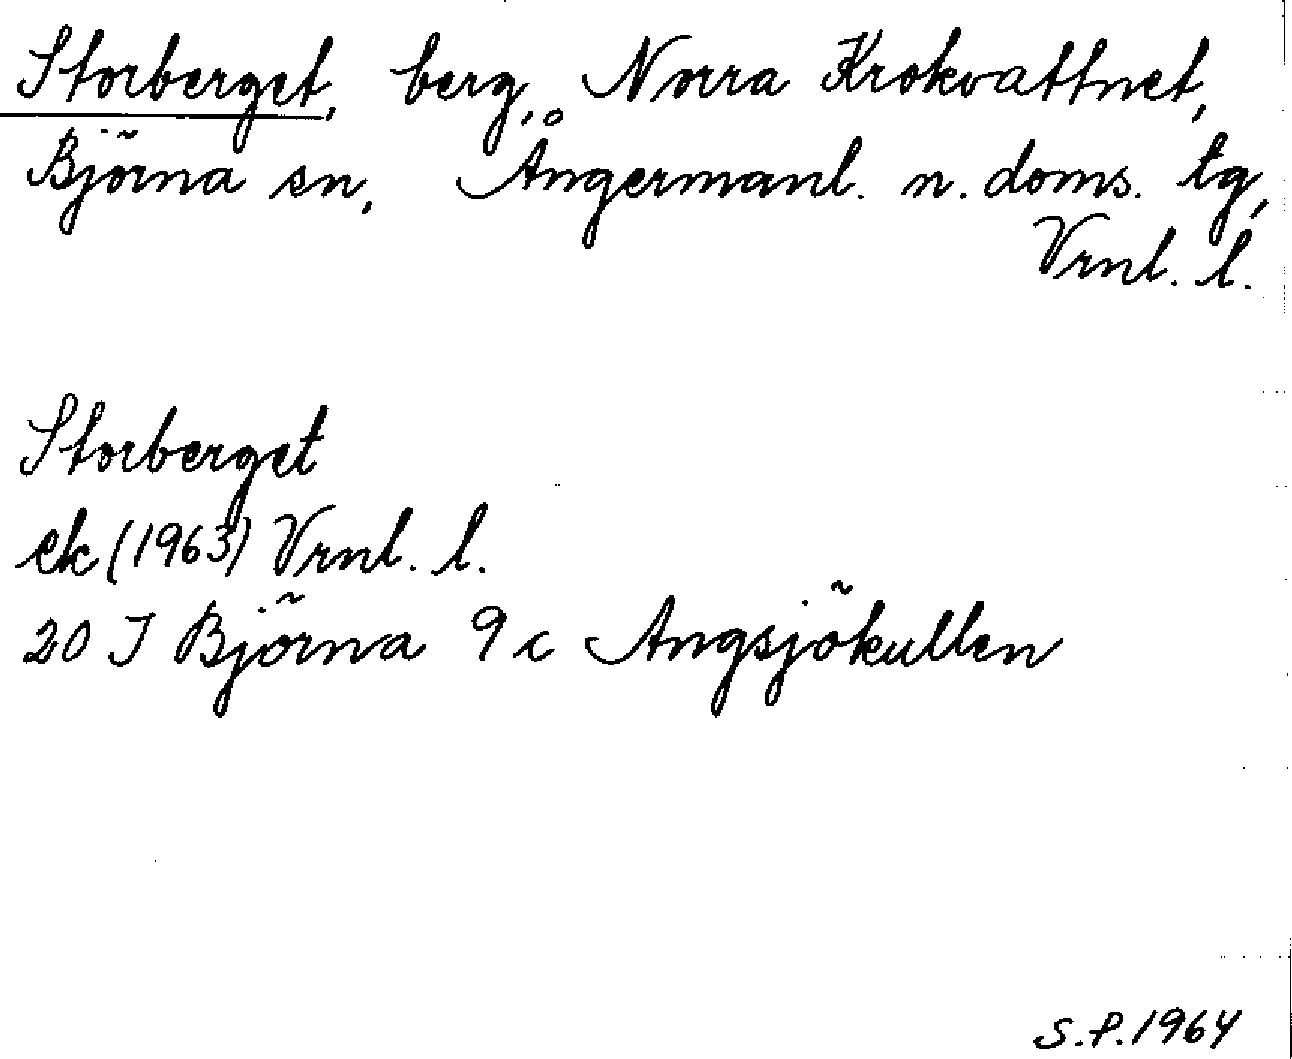 Storberget, berg, Norra Krokvattnet,
Björna sn, Ångermanl. n. doms. tg,
Vrnl. l.
Storberget
ek (1963) Vrnl. l.
20 J Björna 9 c Angsjökullen
S.P. 1964